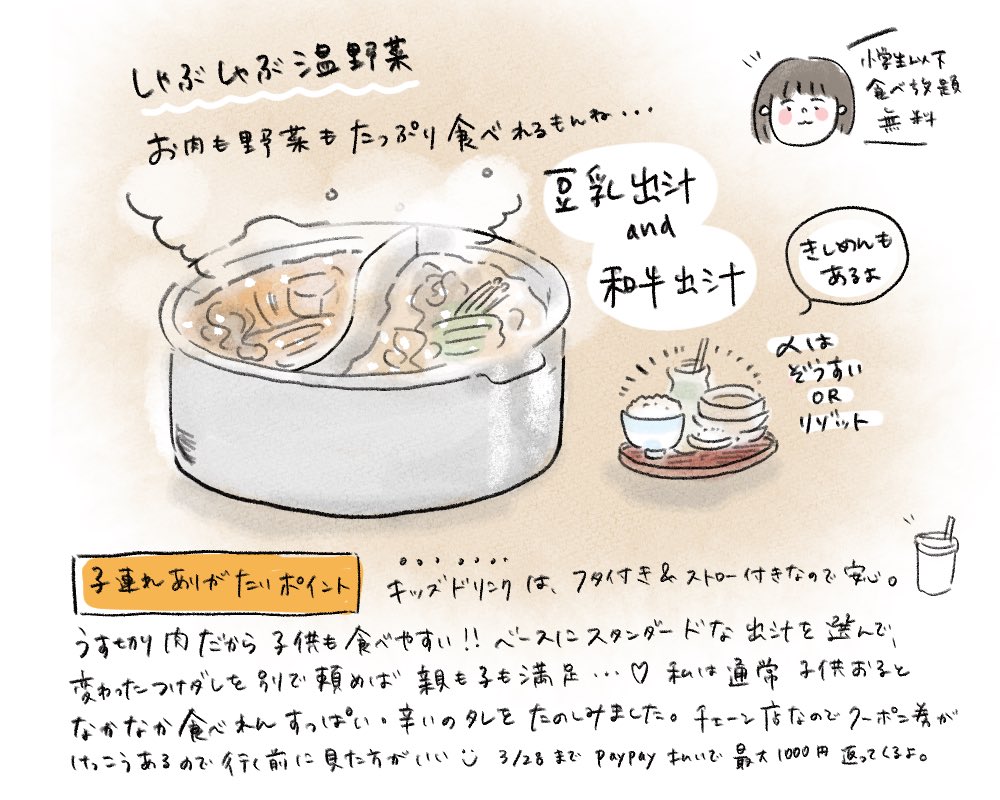 しゃぶしゃぶ温野菜
お肉も野菜もたっぷり食べれるもんね...
小学生以下
食べ放題
無料
豆乳出汁
and
和牛出汁
きしめんも
あるよ
〆は
ぞうすい
OR
リゾット
子連れありがたいポイント
キッズドリンクは、フタ付き&ストロー付きなので安心。
うす切り肉だから子供も食べやすい!! ベースにスタンダードな出汁を選んで、
変わったつけダレを別で頼めば 親も子も満足...♡ 私は通常 子供おると
なかなか食べれんすっぱい・辛いのタレをたのしみました。チェーン店なのでクーポン券が
けっこうあるので行く前に見た方がいい 3/28まで PayPay払いで最大1000円 返ってくるよ。